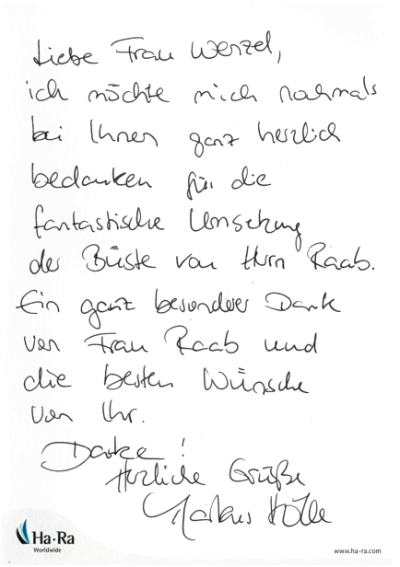 Liebe Frau Wenzel,
ich möchte mich nochmals
bei Ihnen ganz herzlich
bedanken für die
fantastische Umsetzung
der Büste von Herrn Raab.
Ein ganz besonderer Dank
von Frau Raab und
die besten Wünsche
von Ihr.
Danke!
Herzliche Grüße
Markus
Ha·Ra
Worldwide
www.ha-ra.com